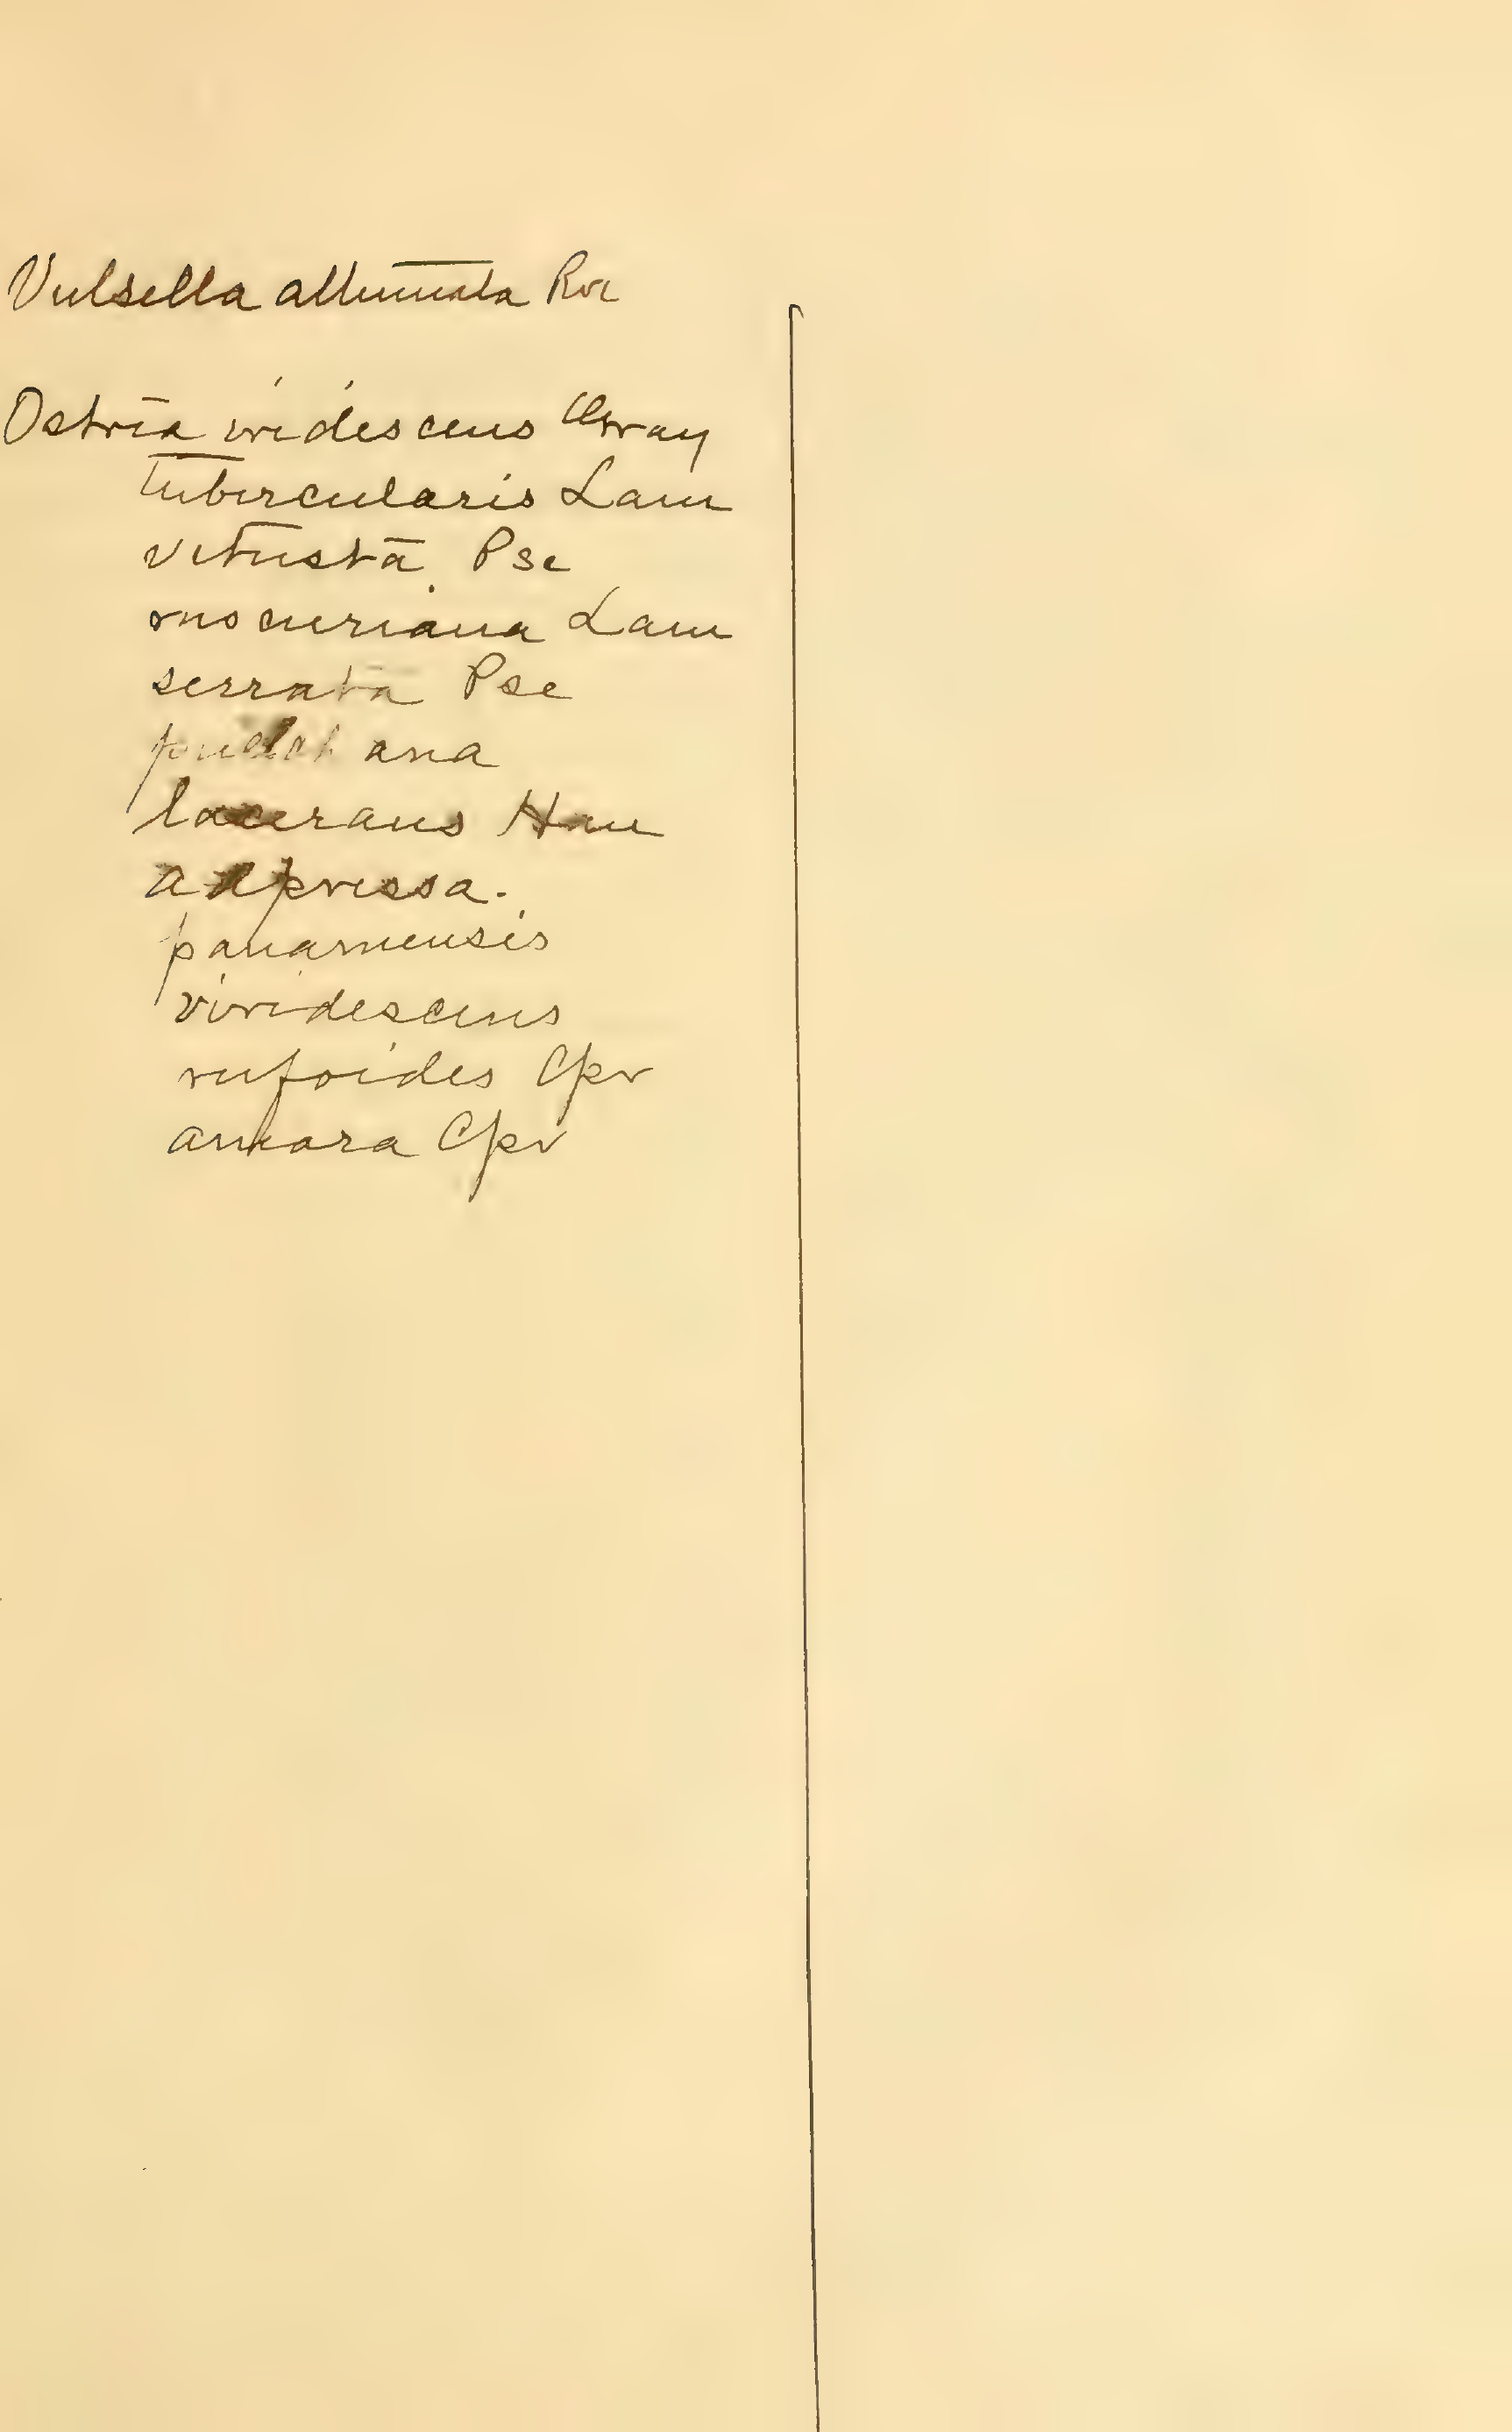 Vulsella attenuata Rve
Ostrea iridescens Gray
tubercularis Lam
vetusta Pse
mscuriana Lam
serrata Pse
ana
lacerans Han
adpressa.
panamensis
viridescens
rufoides Cpr
amara Cpr